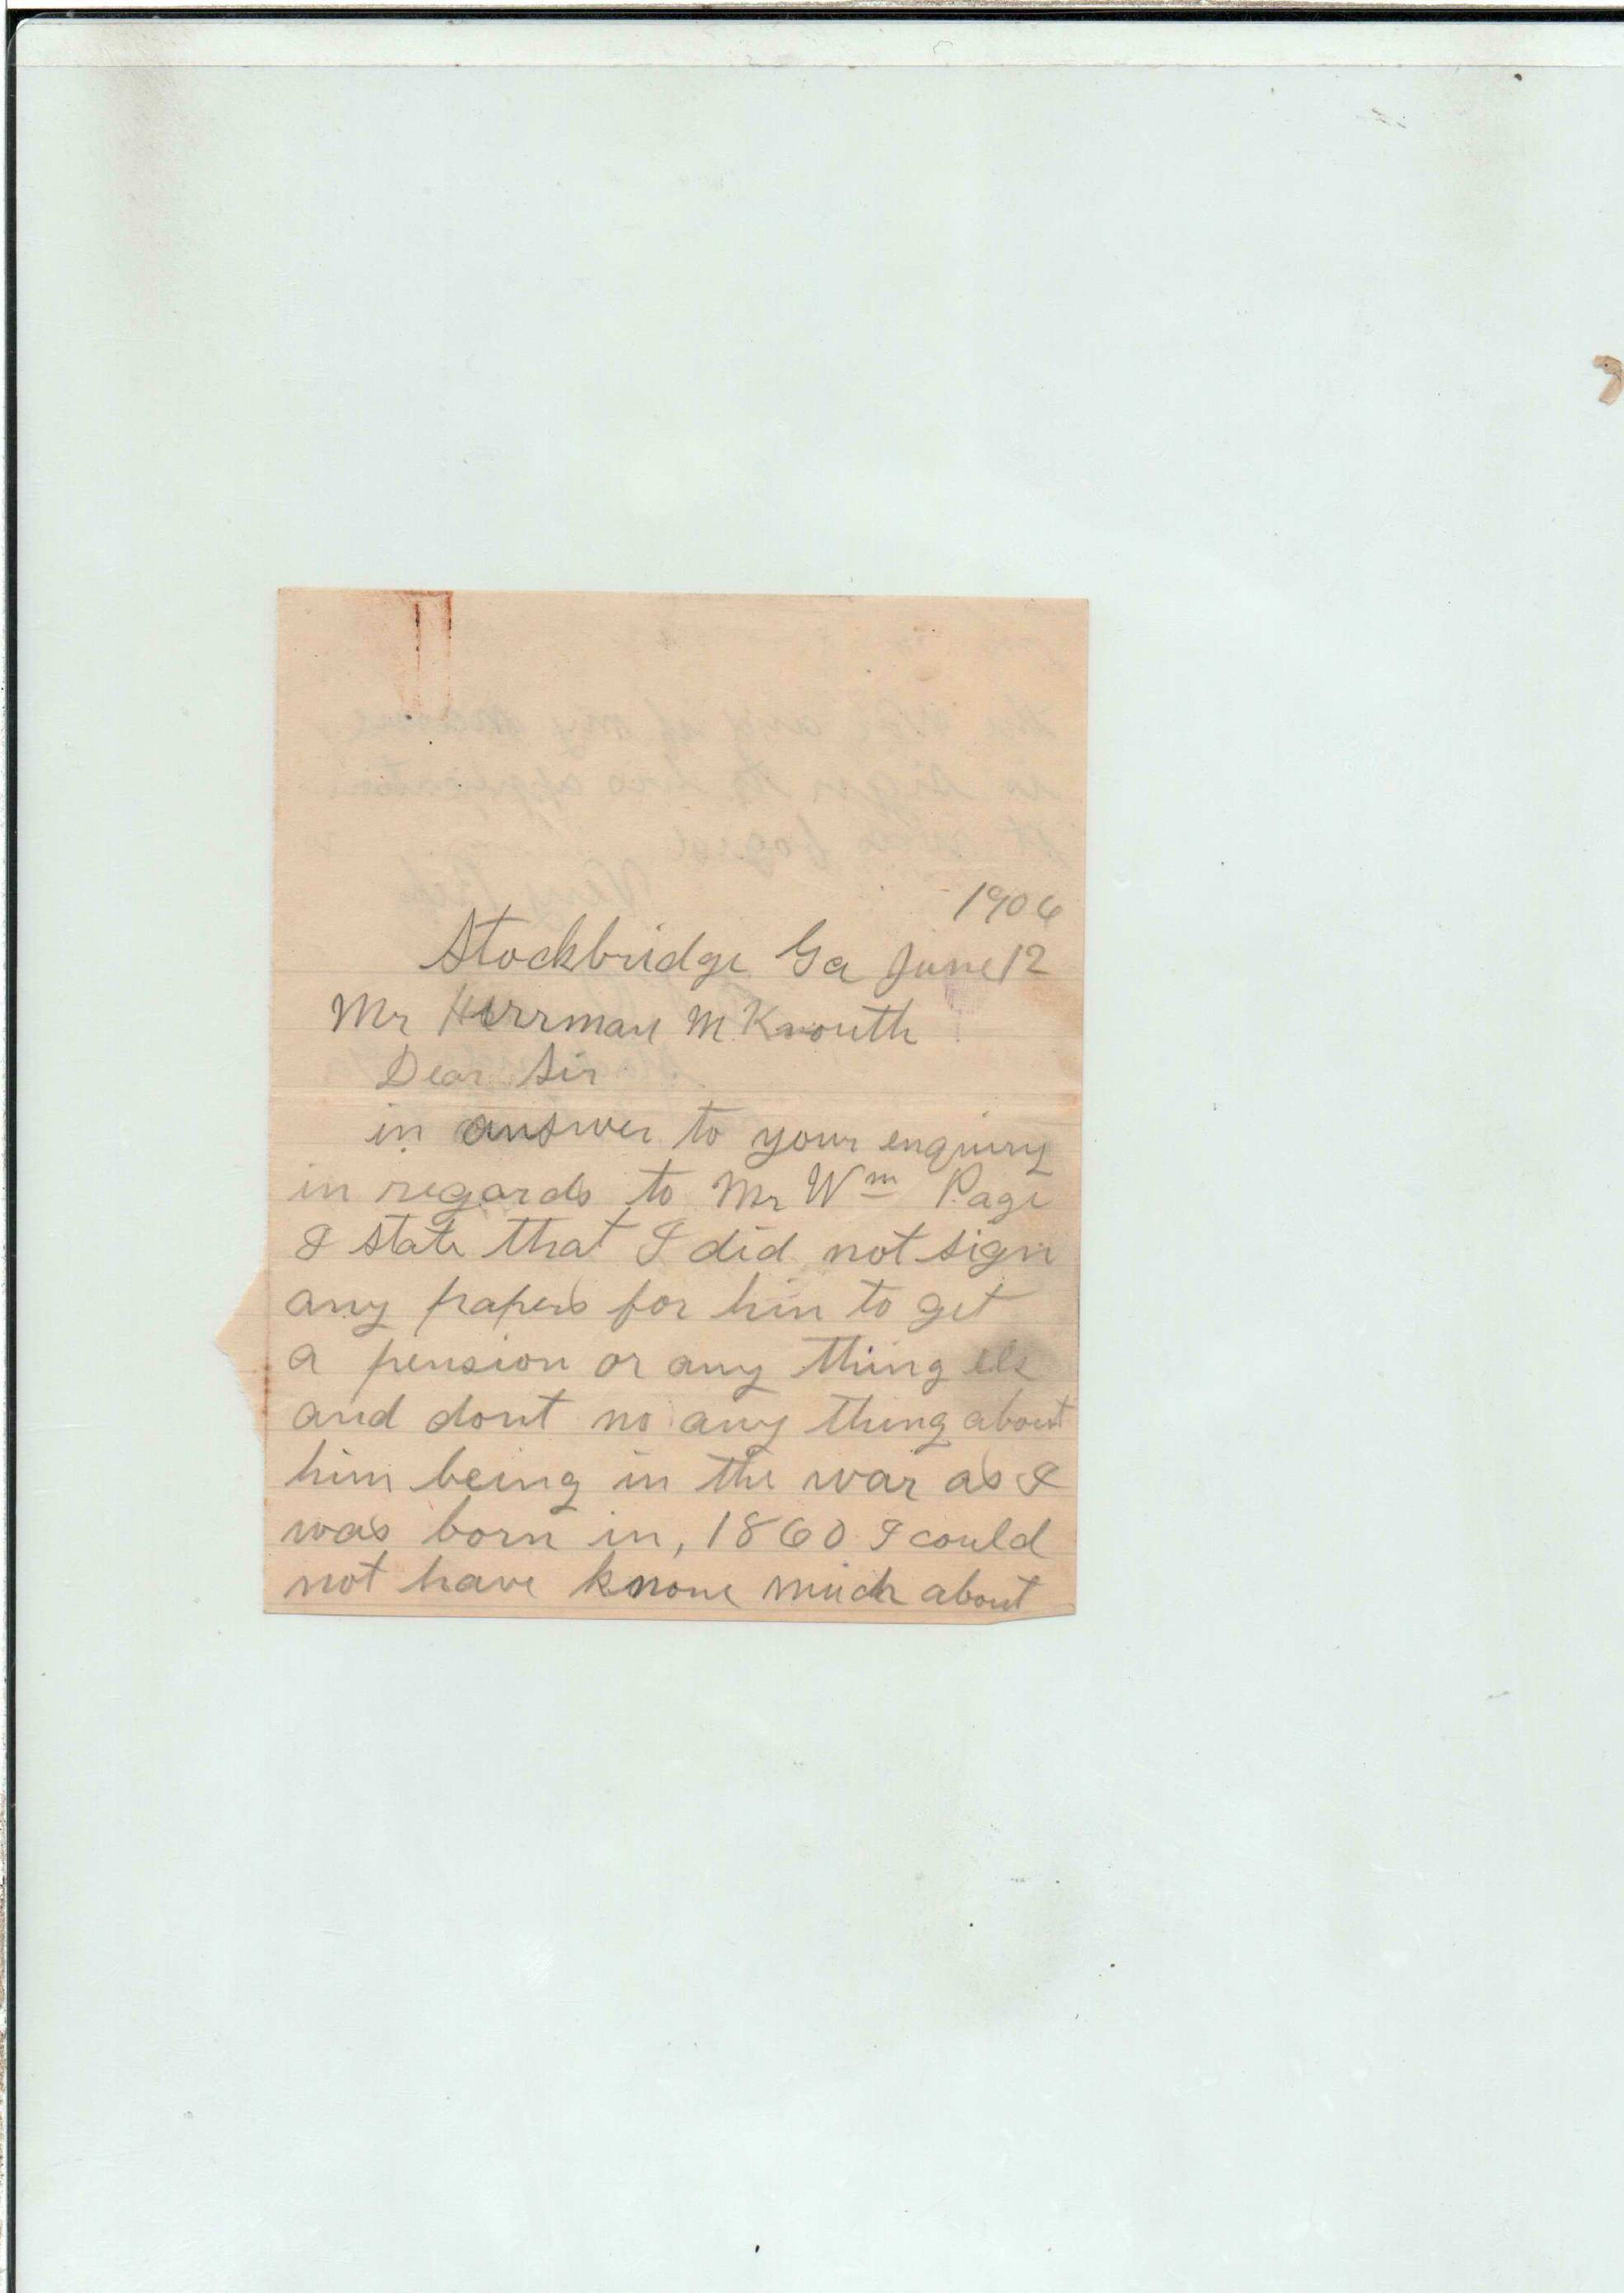 1906
Stockbridge Ga June 12
Mr Herrman M Knouth
Dear Sir
in answer to your enquiry
in regards to Mr Wm Page
I state that I did not sign
any papers for him to get
a pension or any thing els
and dont no any thing about
him being in the war as I
was born in, 1860 I could
not have knone much about